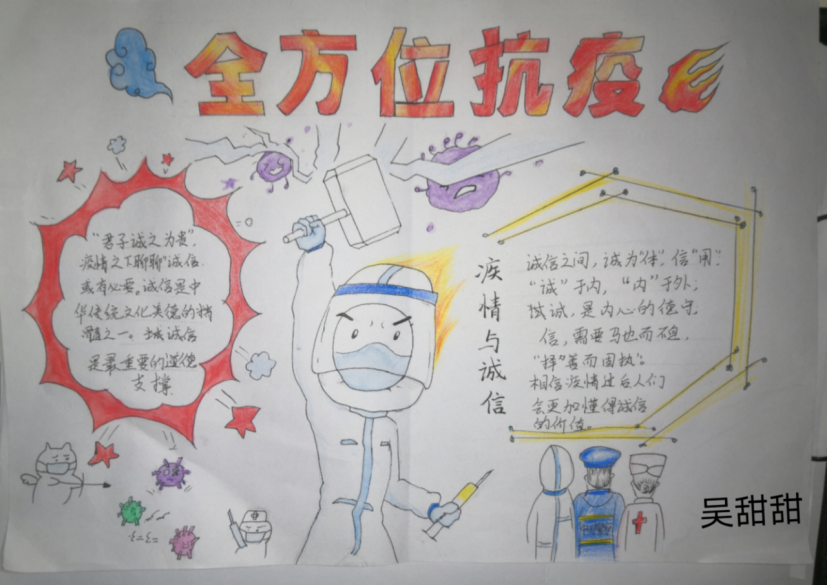 全方位抗疫
"君子诚之为贵",
疫情之下聊聊"诚信
或有必要。诚信是中
华传统文化美德的精
髓之一。城诚信
是最重要的道德
支撑
疾情与诚信
诚信之间,诚为"体",信"用".
"诚"于内,"内"于外;
诚,是内心的德守
信,需要马也而不
"择"善而固执".
相信疫情过后人们
会更加懂得诚信
的价值。
吴甜甜